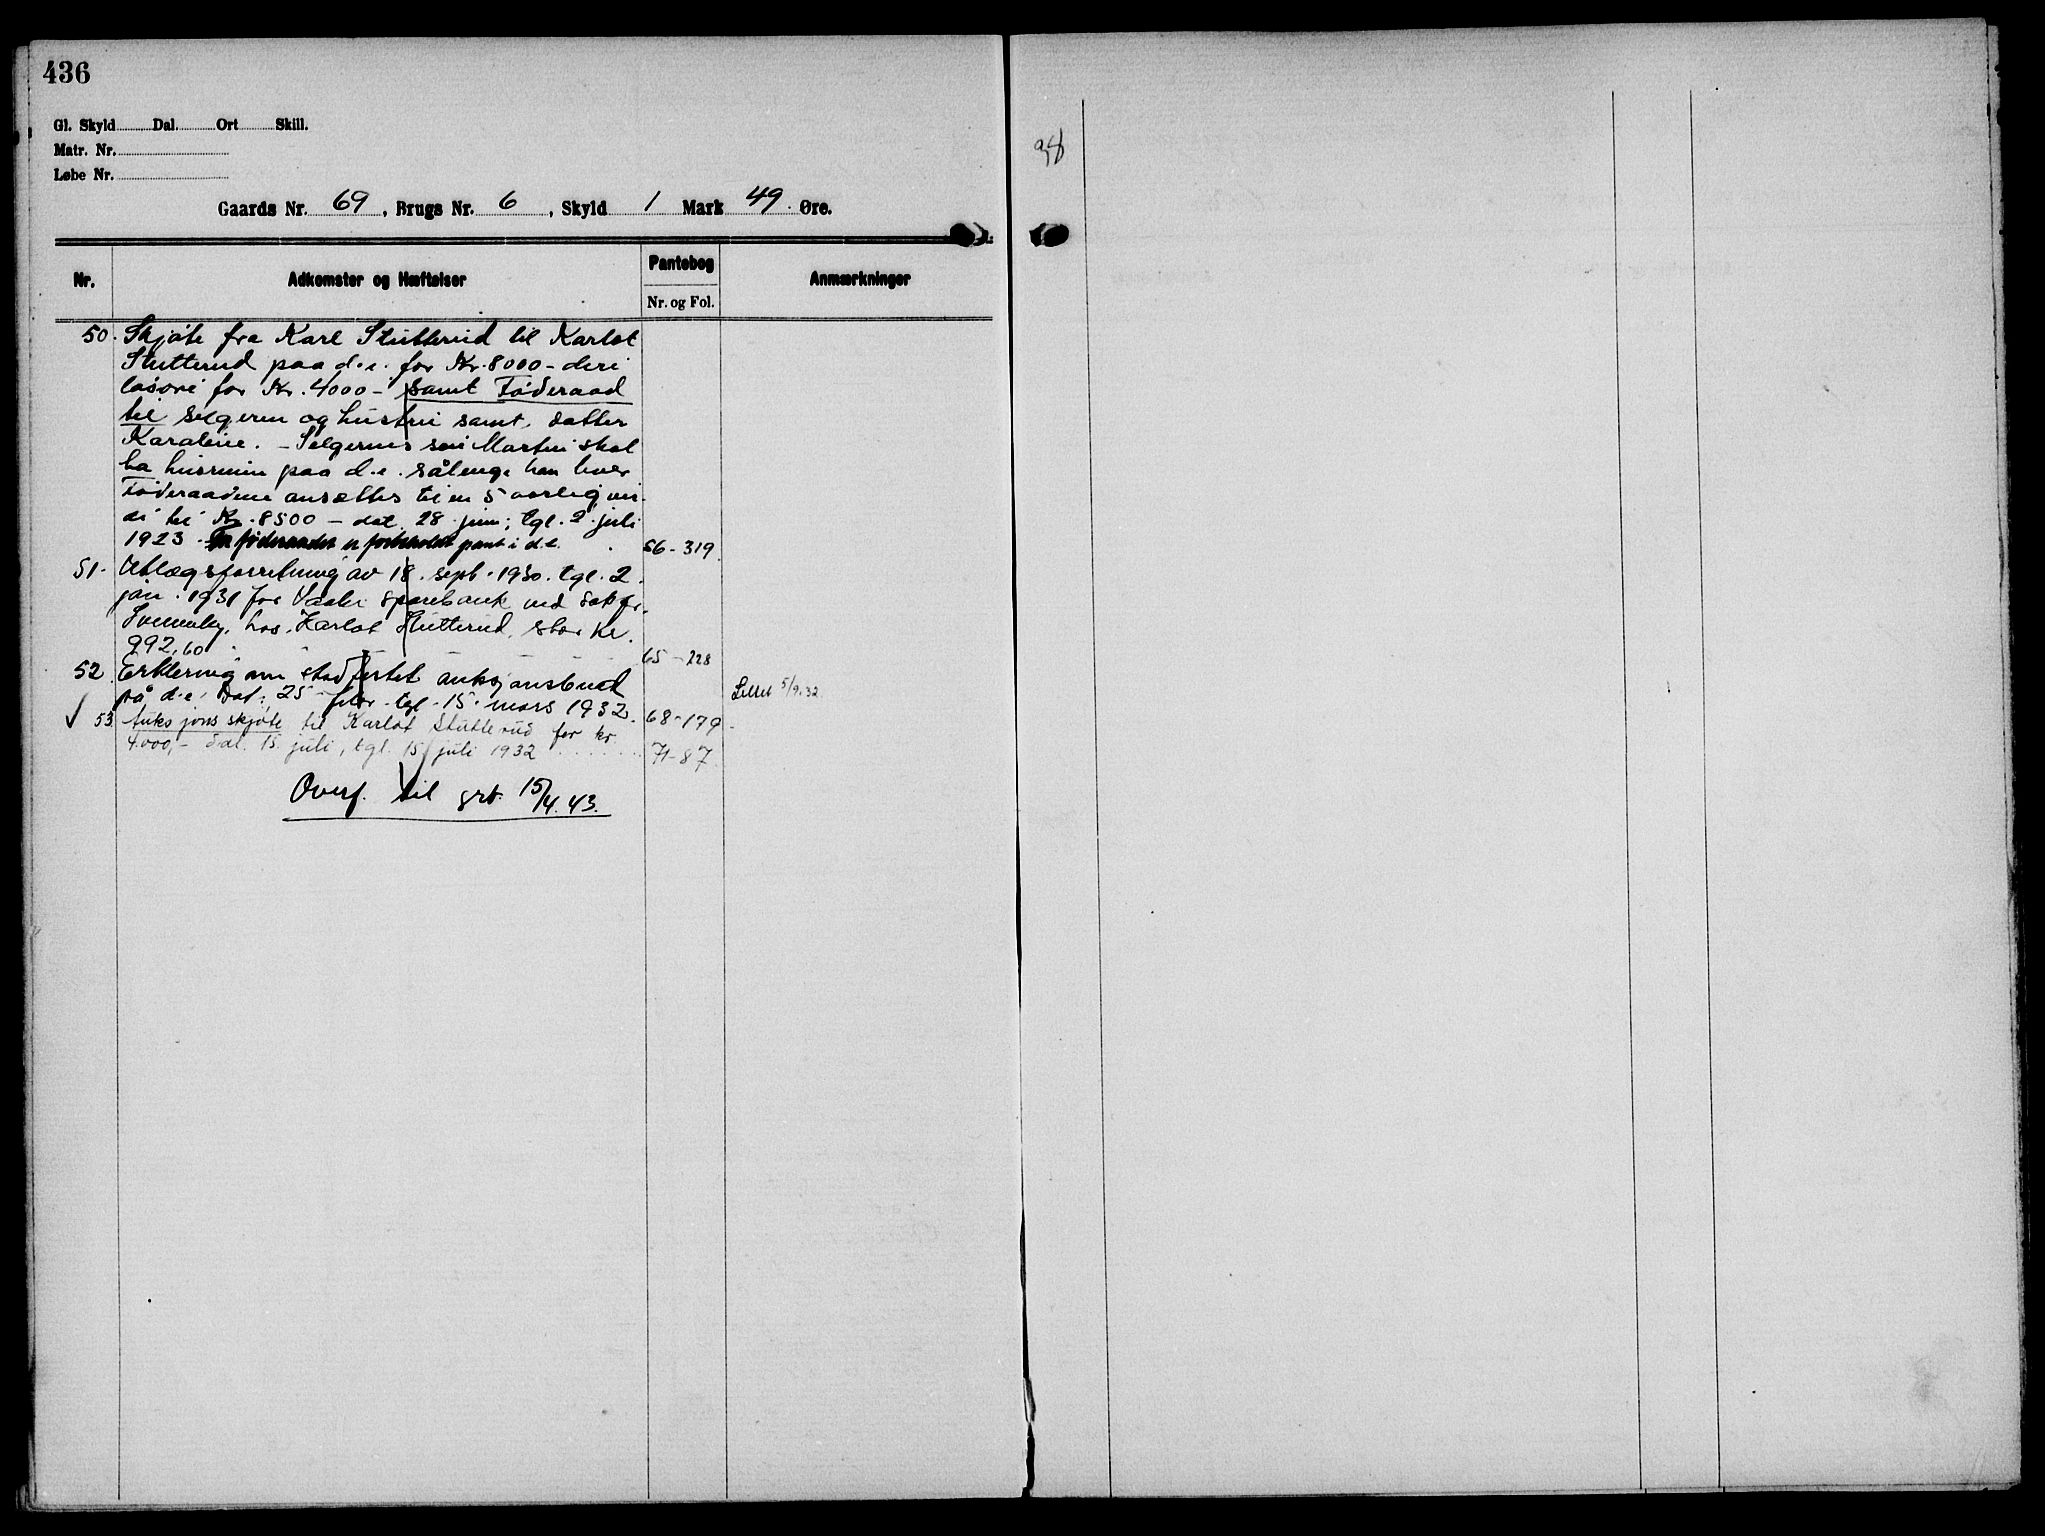 436
Gl. Skyld Dal. Ort Skill.
Matr. Nr.
Løbe Nr.
Gaards Nr. 69, Brugs Nr. 6, Skyld 1 Mark 49 Øre.
Nr. Adkomster og Hæftelser Pantebog Anmærkninger
Nr. og Fol.
50. Skjøte fra Karl Slutterud til Karlot
Slutterud paa d.e. for Kr. 8000 - deri
løsøre for Kr. 4000 - samt Føderaad
til selgeren og hustru samt datter
Karoline. - Selgernes søn Martin skal
ha husrum paa d.e. sålenge han lever
Føderaadene ansættes til en 5 aarlig ver-
di til Kr. 8500 - dat. 28 juni; tgl. 2 juli
1923. føderaadet er forbeholdt pant i d.e. 56 - 319
51. Utlægsforretning av 18. sept. 1930. tgl. 2.
jan. 1931 for Vaaler sparebank ved sakfr.
Svenneby, hos Karlot Slutterud, stor kr.
992,60 65 - 228
52. Erklering om stadfestet auksjonsbud
på d.e. Dat. 25 febr. tgl. 15. mars 1932. 68 - 179 Slettet 5/9.32
53 Auksjonsskjøte til Karlot Slutterud for kr
4.000,- dat. 15. juli, tgl. 15 juli 1932 71 - 87
Overf. til grb. 15/4.43.
38